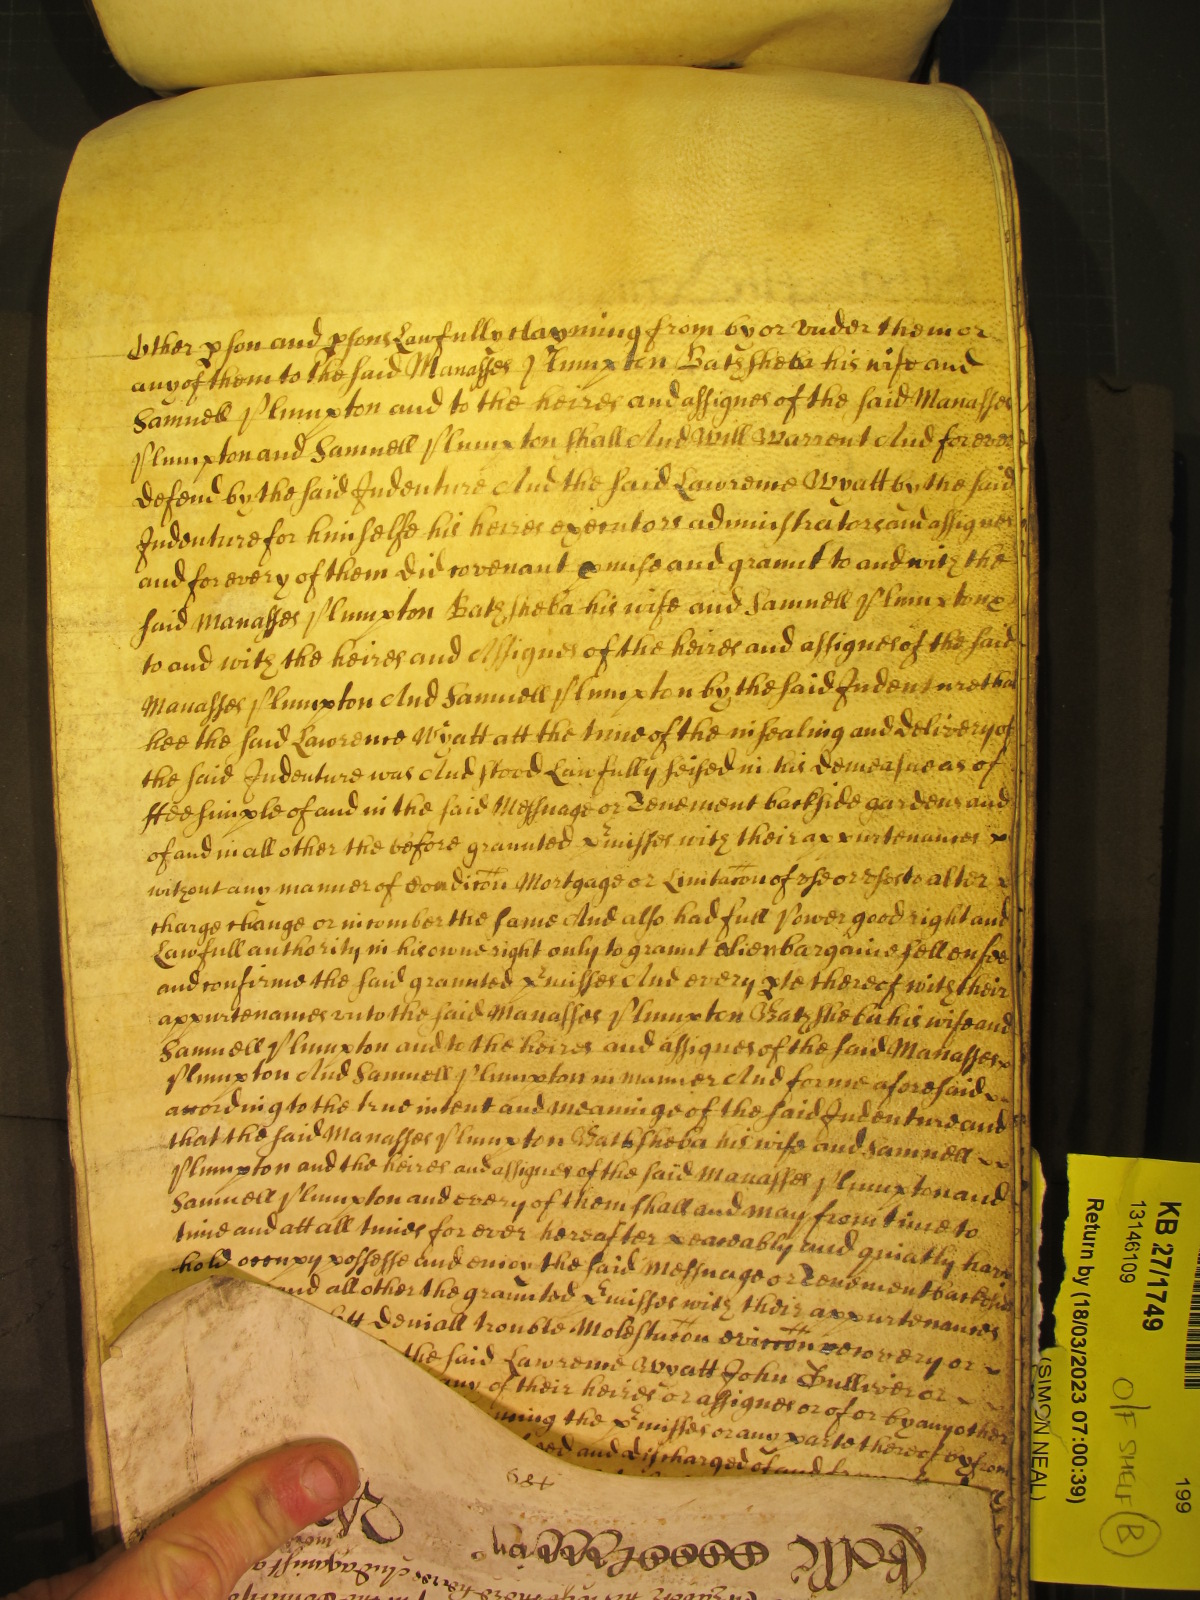 Other pson and psons Lawfully clayming from by or vnder them or
any of them to the said Manasses Plumpton Bathsheba his wife and
Samuell Plumpton and to the heires and assignes of the said Manasses
Plumpton and Samuell Plumpton shall And Will Warrent And for ever
defend by the said Indenture And the said Lawrence Wyatt by the said
Indenture for himselfe his heires executors administrators and assignes
and for every of them did covenant pmise and graunt to and with the
said Manasses Plumpton Bathsheba his wife and Samuell Plumpton
to and with the heires and Assignes of the heires and assignes of the said
Manasses Plumpton And Samuell Plumpton by the said Indenture that
hee the said Lawrence Wyatt att the time of the insealing and delivery of
the said Indenture was And stood Lawfully seised in his demeasne as of
ffee simple of and in the said Messuage or Tenement backside gardens and
of and in all other the before graunted pmisses with their appurtenances
without any manner of Condicon Mortgage or Limitacon of vse or vses to alter
charge change or incomber the same And also had full Power good right and
Lawfull authority in his owne right only to graunt alien bargaine sell enfeoffe
and confirme the said graunted pmisses And every pte thereof with their
appurtenances vnto the said Manasses Plumpton Bathsheba his wife and
Samuell Plumpton and to the heires and assignes of the said Manasses
Plumpton And Samuell Plumpton in manner And forme aforesaid
according to the true intent and meaninge of the said Indenture and
that the said Manasses Plumpton Bathsheba his wife and Samuell
Plumpton and the heires and assignes of the said Manasses Plumpton and
Samuell Plumpton and every of them shall and may from time to
time and att all times for ever hereafter peaceably and quiatly have
hold occupy possesse and enioy the said Messuage or Tenement backside
and all other the graunted pmisses with their appurtenances
lett deniall trouble Molestacon eviccon recovery or
the said Lawrence Wyatt John Gulliver or
any of their heires or assignes or of or by any other
the pmisses or any parte thereof by from
and discharged of and from
KB 27/1749
13146109
Return by (18/03/2023 07:00:39)
(SIMON NEAL)
199
O/F SHELF B